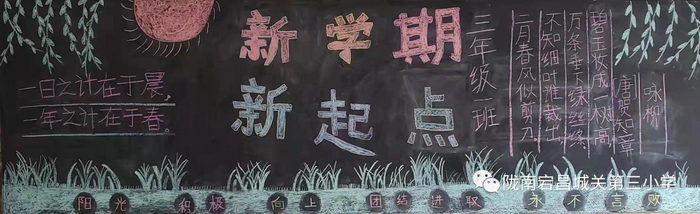 一日之计在于晨，
一年之计在于春。
新学期
新起点
三年级一班
咏柳
唐贺知章
碧玉妆成一树高
万条垂下绿丝绦
不知细叶谁裁出
二月春风似剪刀
阳光 积极 向上 团结进取 永不言败
陇南宕昌城关第三小学